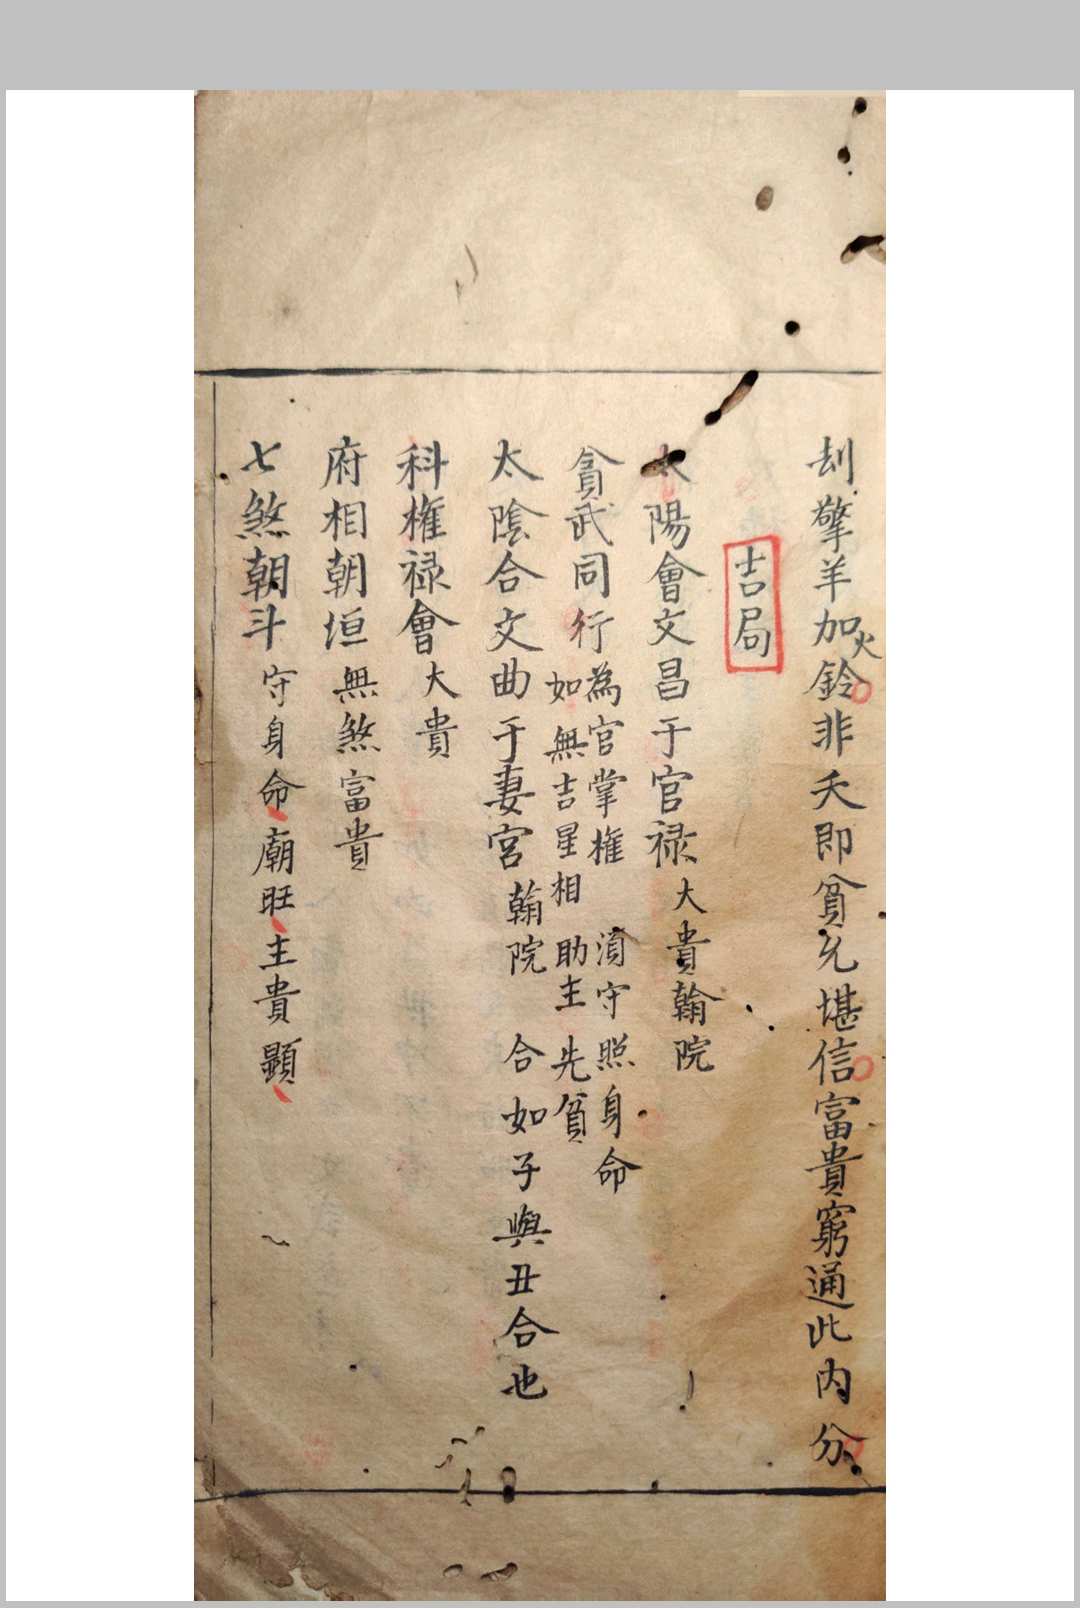 刦擎羊加火鈴非夭即貧兇堪信富貴窮通此內分
吉局
太陽會文昌于官禄大貴翰院
貪武同行為官掌權 湏守照身命
如無吉星相助主先貧
太陰合文曲于妻宮翰院 合如子與丑合也
科權禄會大貴
府相朝垣無煞富貴
七煞朝斗守身命廟旺主貴顯